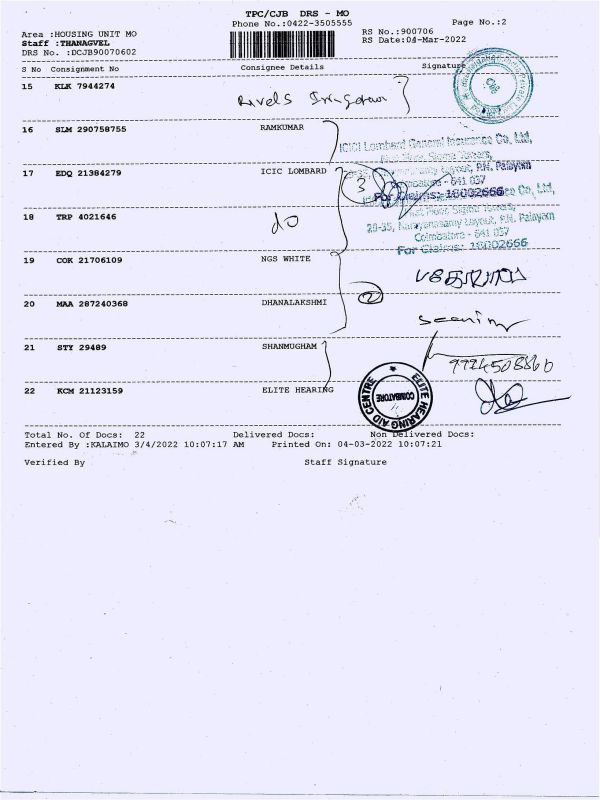 TPC/CJB DRS - MO
Phone No.:0422-3505555 Page No.:2
Area :HOUSING UNIT MO RS No.:900706
Staff :THANGVEL RS Date:04-Mar-2022
DRS No. :DCJB90070602
S No Consignment No Consignee Details Signature
15 KLK 7944274
16 SLM 290758755 RAMKUMAR
ICICI Lombard General Insurance Co, Ltd,
17 EDQ 21384279 ICIC LOMBARD 3
Coimbatore - 641 037
For Claims: 18002666
18 TRP 4021646 do
P.N. Palayam
Coimbatore - 641 037
For Claims: 18002666
19 COK 21706109 NGS WHITE
20 MAA 287240368 DHANALAKSHMI 2
21 STY 29489 SHANMUGHAM
22 KCM 21123159 ELITE HEARING
ELITE HEARING AID CENTRE
COIMBATORE
Total No. Of Docs: 22 Delivered Docs: Non Delivered Docs:
Entered By :KALAIMO 3/4/2022 10:07:17 AM Printed On: 04-03-2022 10:07:21
Verified By Staff Signature